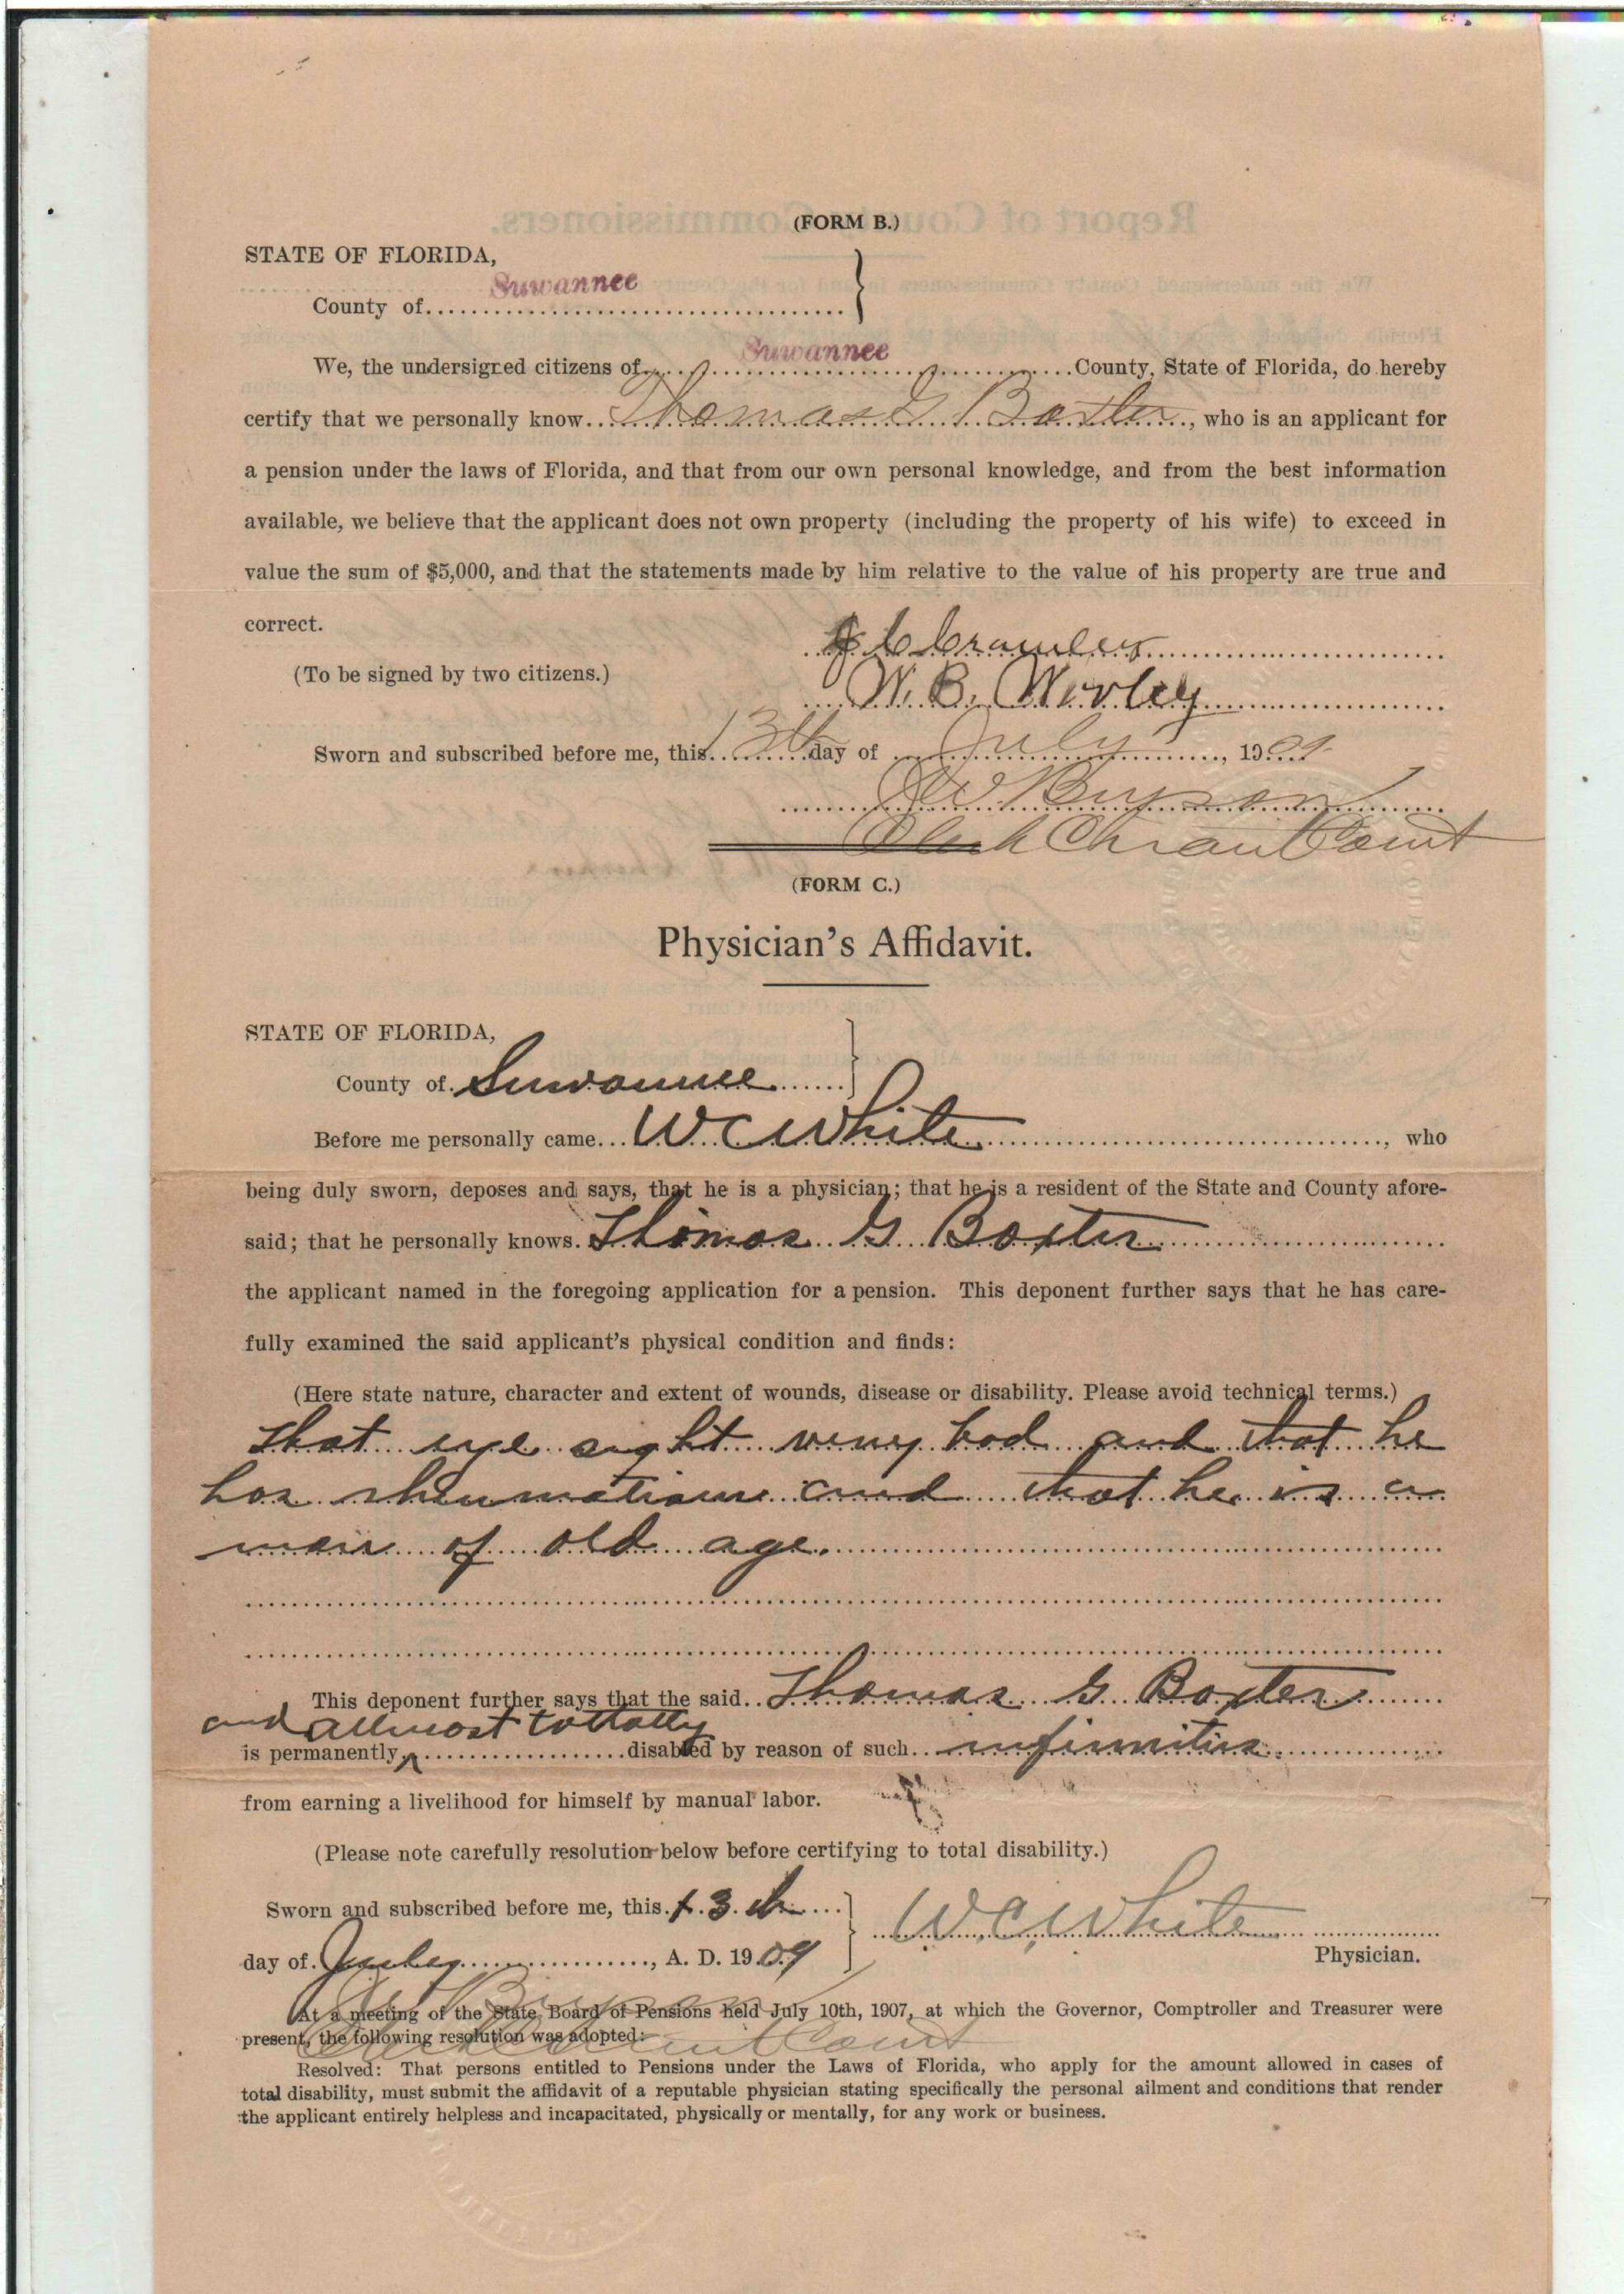 (FORM B.)
STATE OF FLORIDA,
County of Suwannee
We, the undersigned citizens of Suwannee County, State of Florida, do hereby
certify that we personally know Thomas G Baxter, who is an applicant for
a pension under the laws of Florida, and that from our own personal knowledge, and from the best information
available, we believe that the applicant does not own property (including the property of his wife) to exceed in
value the sum of $5,000, and that the statements made by him relative to the value of his property are true and
correct.
(To be signed by two citizens.)
W. B. Worley
Sworn and subscribed before me, this 13th day of July, 1909
J W Bryson
Clerk Circuit Court
(FORM C.)
Physician's Affidavit.
STATE OF FLORIDA,
County of Suwannee
Before me personally came W C White, who
being duly sworn, deposes and says, that he is a physician; that he is a resident of the State and County afore-
said; that he personally knows Thomas G Baxter
the applicant named in the foregoing application for a pension. This deponent further says that he has care-
fully examined the said applicant's physical condition and finds:
(Here state nature, character and extent of wounds, disease or disability. Please avoid technical terms.)
that eye sight verry bad and that he
has rheumatism and that he is a
man of old age.
This deponent further says that the said Thomas G Baxter
and allmost tottally
is permanently disabled by reason of such infirmities
from earning a livelihood for himself by manual labor.
(Please note carefully resolution below before certifying to total disability.)
Sworn and subscribed before me, this 13th
day of July, A. D. 1909
W. C. White
Physician.
J W Bryson
Clerk Circuit Court
At a meeting of the State Board of Pensions held July 10th, 1907, at which the Governor, Comptroller and Treasurer were
present, the following resolution was adopted:
Resolved: That persons entitled to Pensions under the Laws of Florida, who apply for the amount allowed in cases of
total disability, must submit the affidavit of a reputable physician stating specifically the personal ailment and conditions that render
the applicant entirely helpless and incapacitated, physically or mentally, for any work or business.